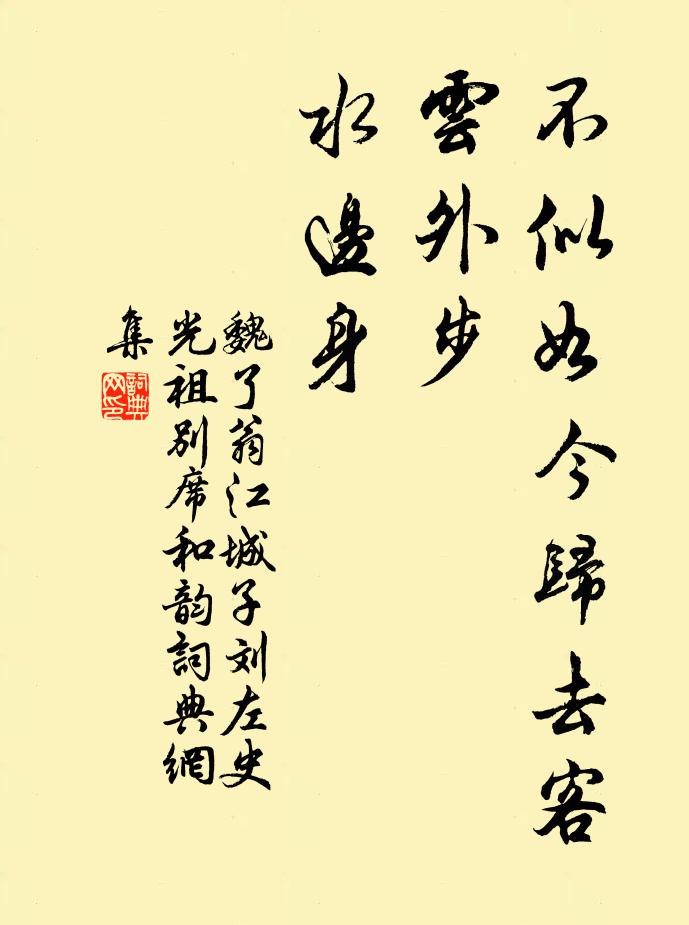 不似如今歸去客
雲外步
水邊身
魏了翁江城子刘左史
光祖别席和韵詞典網
集
詞典
网印